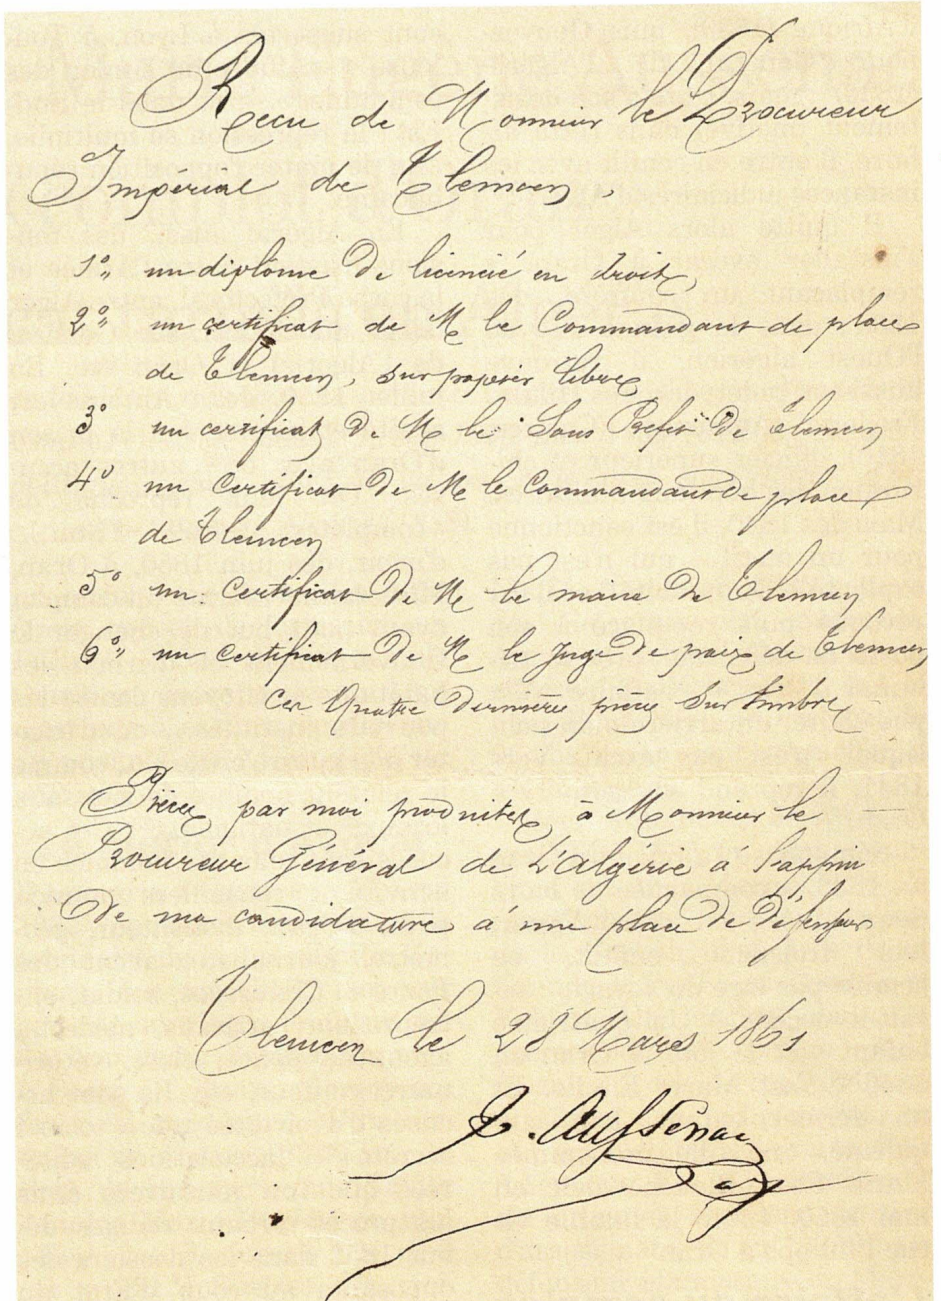 Recu de Monsieur le Procureur
Impérial de Tlemcen,
1° un diplôme de licencié en droit,
2° un certificat de M le Commandant de place
de Tlemcen, sur papier libre
3° un certificat de M le Sous Préfet de Tlemcen
4° un certificat de M le Commandant de place
de Tlemcen
5° un certificat de M le maire de Tlemcen
6° un certificat de M le Juge de paix de Tlemcen
Ces quatre dernières pièces sur timbre
Pièces par moi produites à Monsieur le
Procureur Général de L'algérie à l'appui
De ma candidature à une place de défenseur
Tlemcen le 28 Mars 1861